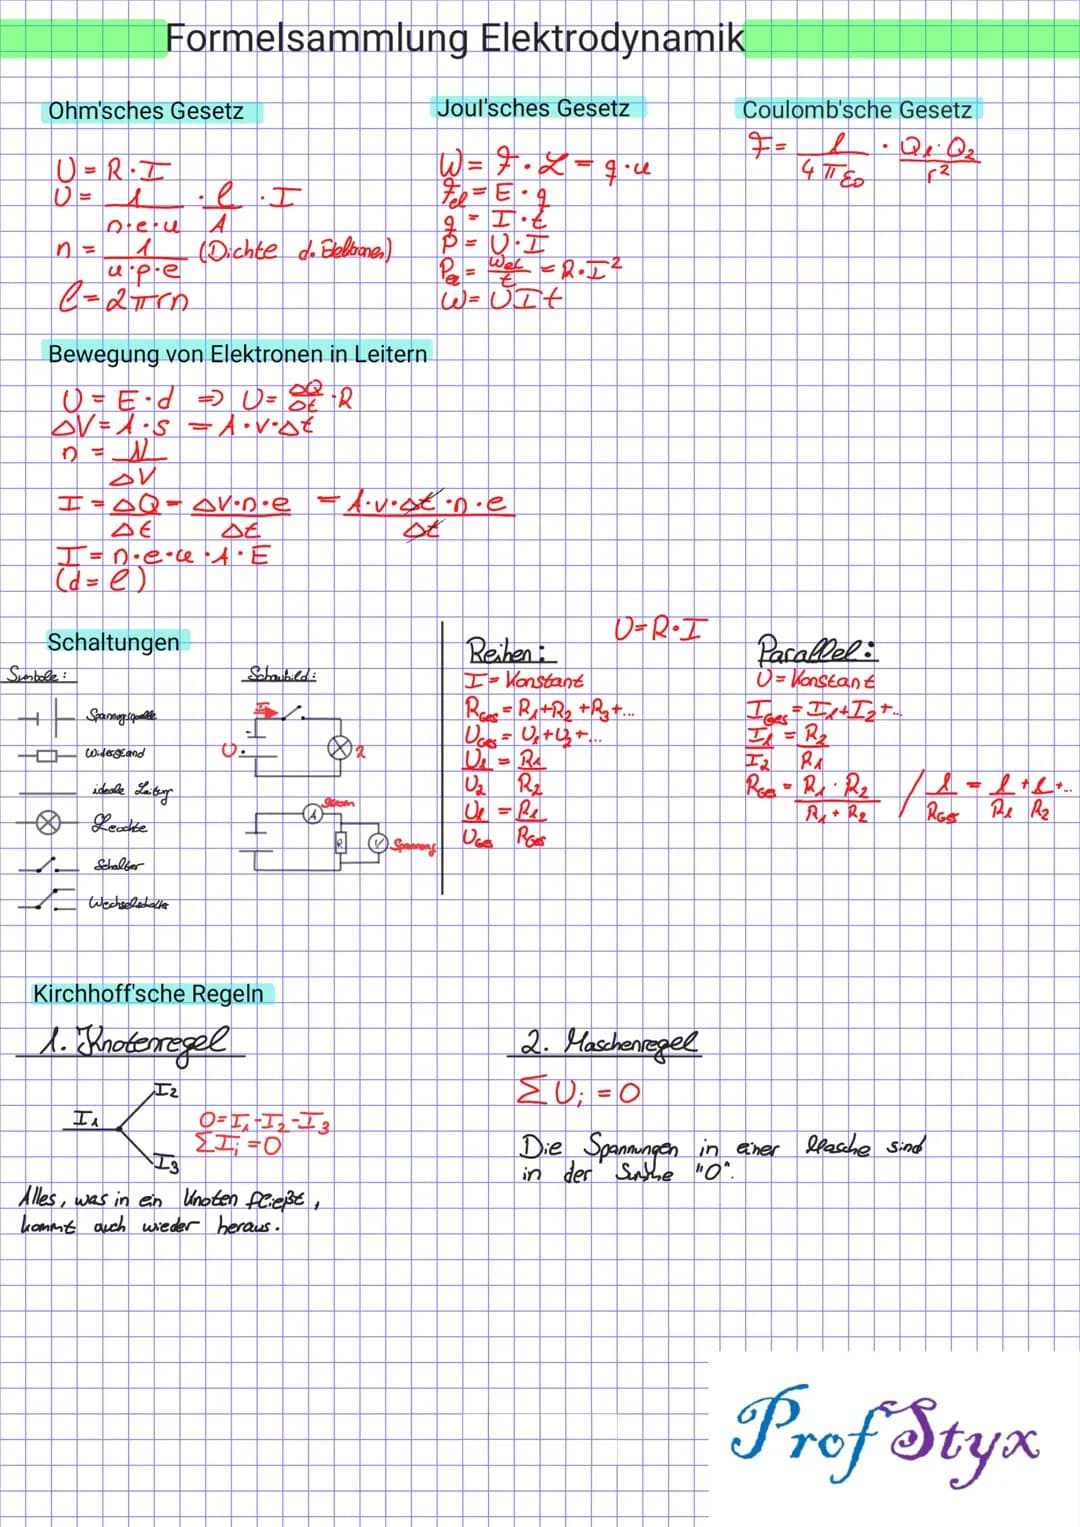 Formelsammlung Elektrodynamik
Ohm'sches Gesetz
U = R · I
U = 1/(n·e·u) · l/A · I
n = 1/(u·p·e) (Dichte d. Elektronen)
l = 2πrn
Joul'sches Gesetz
W = F · L = q · u
Fel = E · q
q = I · t
P = U · I
Pel = Wel/t = R · I²
W = U I t
Coulomb'sche Gesetz
F = 1/(4πε0) · Q1·Q2/r²
Bewegung von Elektronen in Leitern
U = E · d ⇒ U = ΔQ/Δt · R
ΔV = A · s = A · v · Δt
n = N/ΔV
I = ΔQ/Δt = ΔV·n·e/Δt = A·v·Δt·n·e/Δt
I = n·e·u·A·E
(d = l)
Schaltungen
Symbole:
Spannungsquelle
Widerstand
ideale Leitung
Leuchte
Schalter
Wechselschalter
Schaubild:
I
U
R
Strom
A
R
V
Spannung
U = R · I
Reihen:
I = Konstant
RGes = R1 + R2 + R3 + ...
UGes = U1 + U2 + ...
U1/U2 = R1/R2
U1/UGes = R1/RGes
Parallel:
U = Konstant
IGes = I1 + I2 + ...
I1/I2 = R2/R1
RGes = R1 · R2/(R1 + R2) / 1/RGes = 1/R1 + 1/R2 + ...
Kirchhoff'sche Regeln
1. Knotenregel
I1
I2
I3
0 = I1 - I2 - I3
ΣIi = 0
Alles, was in ein Knoten fließt,
kommt auch wieder heraus.
2. Maschenregel
ΣUi = 0
Die Spannungen in einer Masche sind
in der Summe "0".
Prof Styx